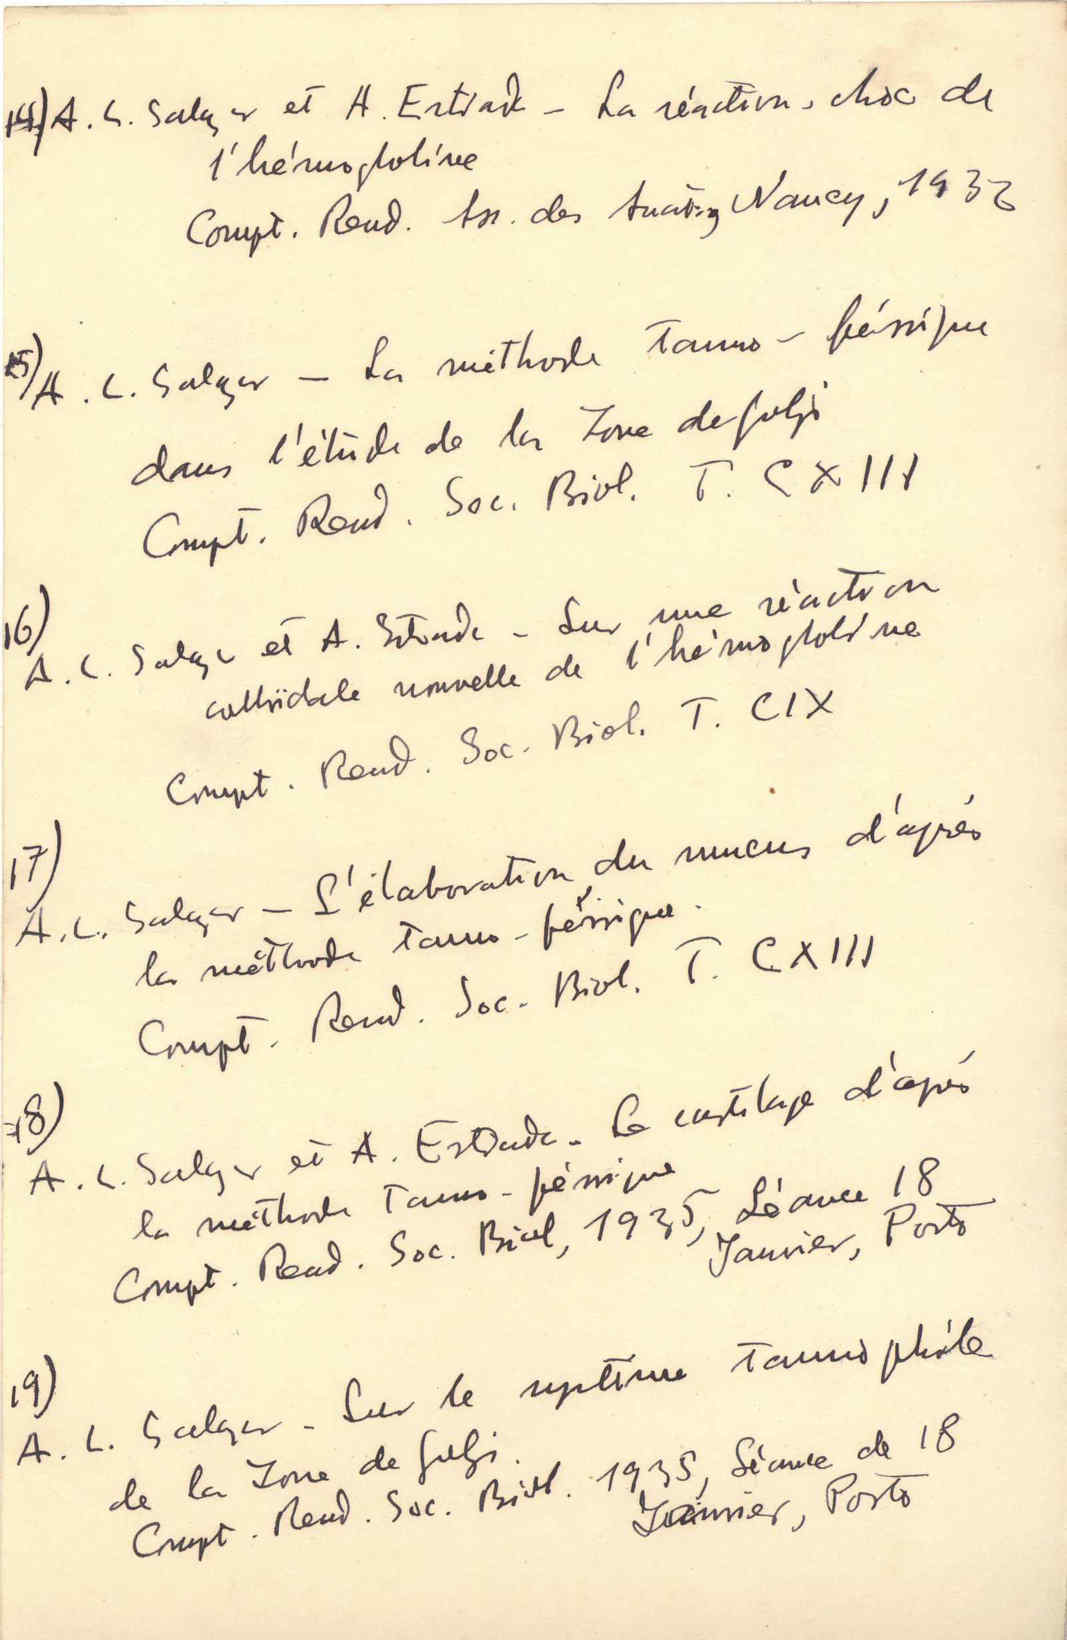 14) A. L. Salazar et A. Estrada – La réaction-choc de
l'hémoglobine
Compt. Rend. Ass. des Anat., Nancy, 193
15) A. L. Salazar – La méthode tanno-férrique
dans l'étude de la Zone de Golgi
Compt. Rend. Soc. Biol. T. CXIII
16)
A. L. Salazar et A. Estrada – Sur une réaction
colloïdale nouvelle de l'hémoglobine
Compt. Rend. Soc. Biol. T. CIX
17)
A. L. Salazar – L'élaboration du mucus d'après
la méthode tanno-férrique.
Compt. Rend. Soc. Biol. T. CXIII
18)
A. L. Salazar et A. Estrada – Le cartilage d'après
la méthode tanno-férrique
Compt. Rend. Soc. Biol, 1935, Séance 18
Janvier, Porto
19)
A. L. Salazar – Sur le système tannophile
de la Zone de Golgi.
Compt. Rend. Soc. Biol. 1935, Séance de 18
Janvier, Porto